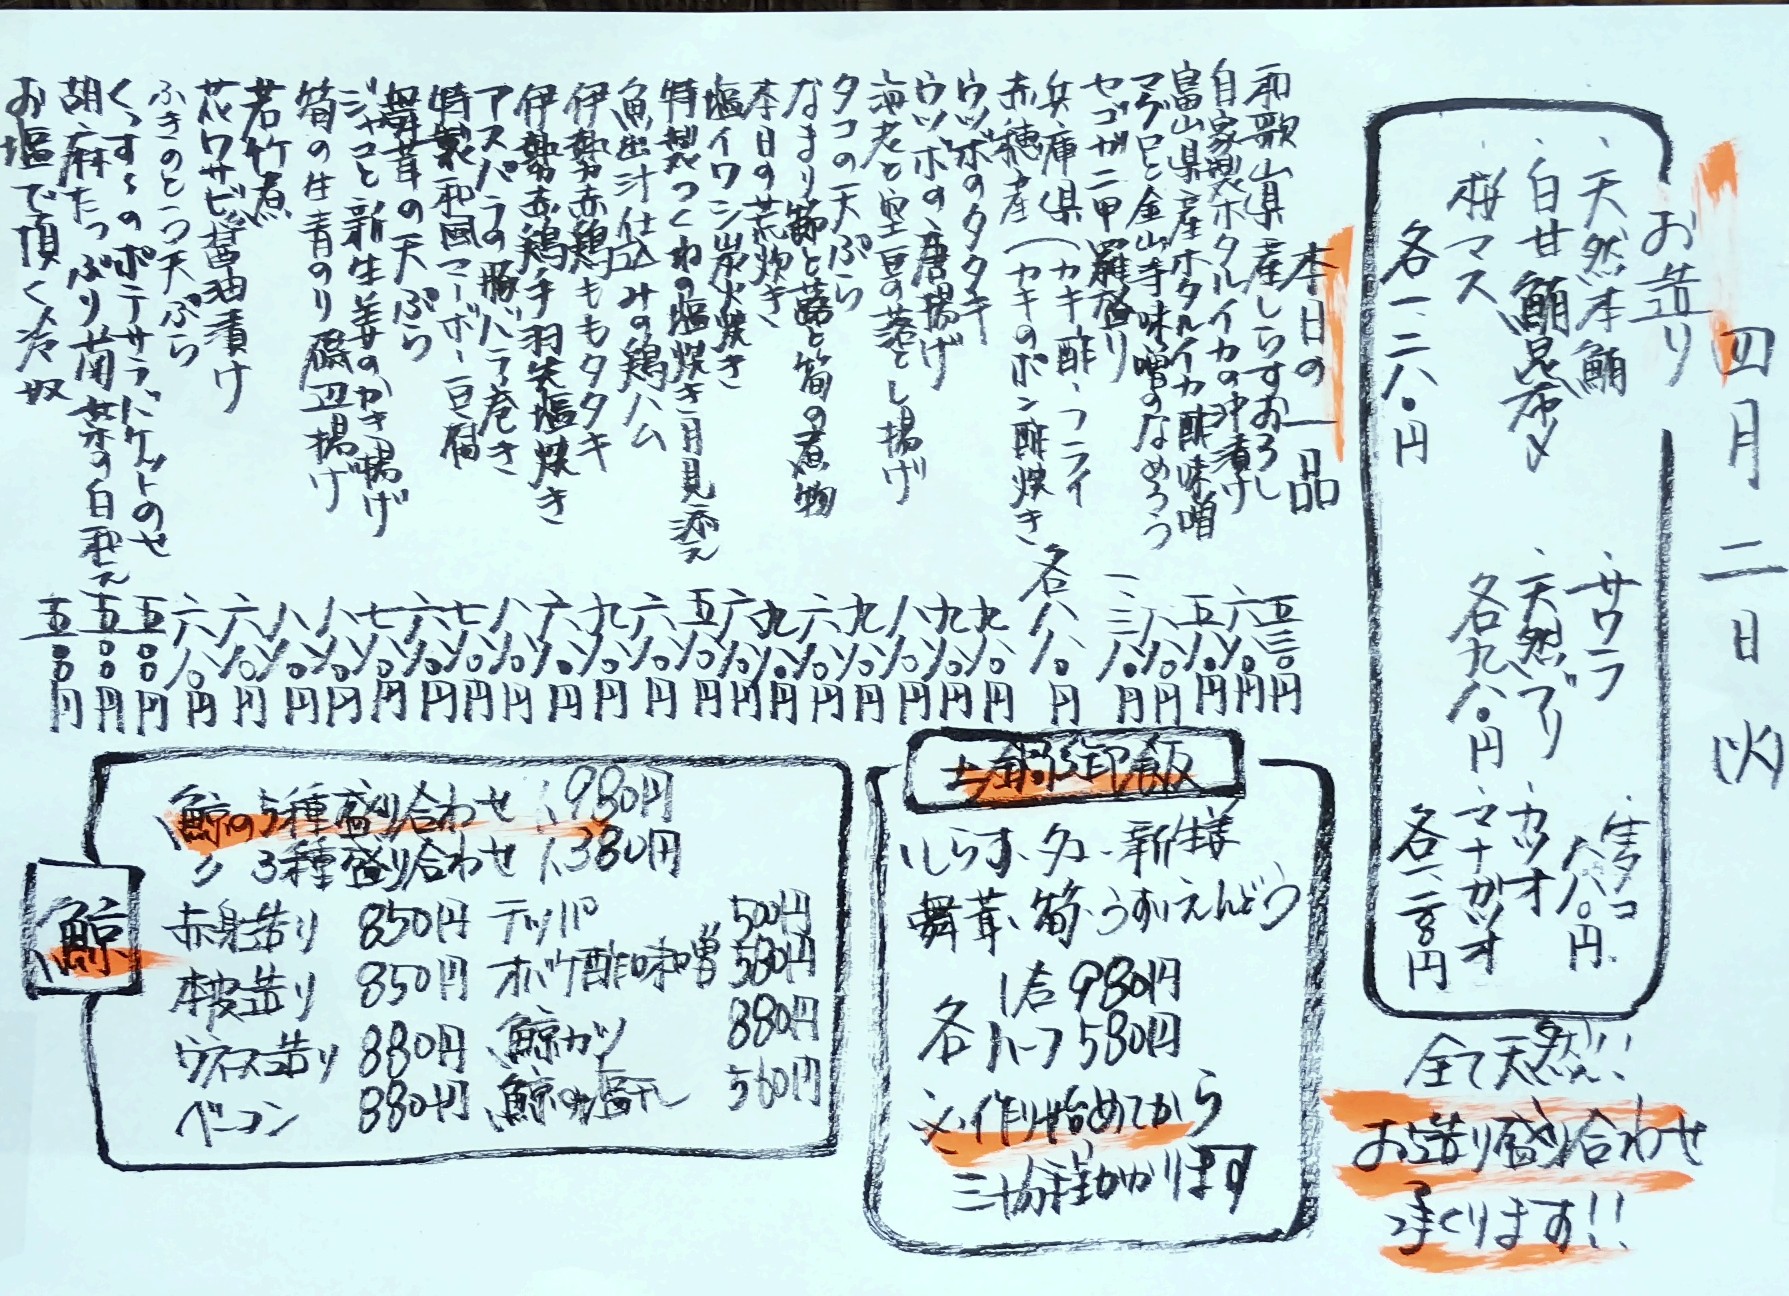 四月二日(火)
お造り
・天然本鮪
・白甘鯛昆布〆
・桜マス
各一、二八〇円
・サワラ
・天然ブリ
各九八〇円
・生タコ
八八〇円
・カツオ
・マナガツオ
各一、二八〇円
全て天然!!
お造り盛り合わせ
承ります!!
本日の一品
和歌山県産しらすおろし 五三〇円
自家製ホタルイカの沖漬け 六八〇円
富山県産ホタルイカ酢味噌 五八〇円
マグロと金山寺味噌のなめろう 六八〇円
セコガニ甲羅盛り 一、三八〇円
兵庫県(カキ酢、フライ
赤穂産(カキのポン酢焼き 各八八〇円
ウツボのタタキ 九八〇円
ウツボの唐揚げ 九八〇円
海老と空豆の落とし揚げ 八八〇円
なまり節と蕗と筍の煮物 九八〇円
タコの天ぷら 六八〇円
本日の荒炊き 九八〇円
塩イワシ炭火焼き 六八〇円
特製つくねの塩焼き月見添え 五八〇円
魚出汁仕込みの鶏ハム 六八〇円
伊勢赤鶏ももタタキ 九八〇円
伊勢赤鶏手羽先塩焼き 六八〇円
アスパラの豚バラ巻き 八八〇円
特製和風マーボー豆腐 七八〇円
舞茸の天ぷら 六八〇円
ジャコと新生姜のかき揚げ 七八〇円
筍の生青のり磯辺揚げ 八八〇円
若竹煮 八八〇円
花ワサビ醤油漬け 六八〇円
ふきのとう天ぷら 六八〇円
くっすぅのポテサラバケットのせ 五〇〇円
胡麻たっぷり菊菜の白和え 五〇〇円
お塩で頂く冷奴 五〇〇円
土鍋御飯
しらす、タコ、新生姜
舞茸、筍、うすいえんどう
各 1合 980円
ハーフ 580円
※作り始めてから
三十分程かかります
鯨
鯨の5種盛り合わせ 1,980円
〃 3種盛り合わせ 1,380円
赤身造り 850円 テッパ 500円
本皮造り 850円 オバケ酢味噌 580円
ウネス造り 880円 鯨カツ 880円
ベーコン 880円 鯨の塩干し 560円